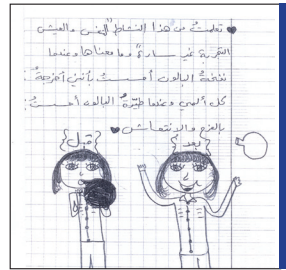 تعلمتُ من هذا النشاط التنفس والعيش
التجربة غير سارة وما معناها وعندما
نفختُ البالون أحسستُ بأنني أخرجتُ
كل ألمي وعندما طيّرتُ البالون أحسستُ
بالفرح والانتعاش
{قبل} {بعد}